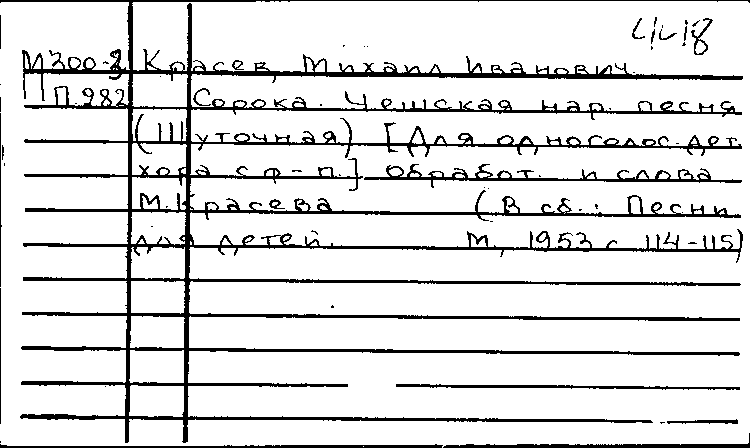 4418
М300-3 Красев, Михаил Иванович
П 982 Сорока. Чешская нар. песня
(Шуточная) [Для одноголос. дет.
хора с ф-п.] обработ. и слова
М. Красева (В сб.: Песни
для детей. М., 1953 с 114-115)